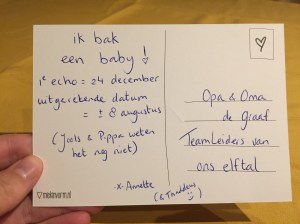 ik bak
een baby!
1e echo = 24 december
uitgerekende datum
= ± 8 augustus
(Jools & Pippa weten
het nog niet)
-x- Annette
(& Thaddeus)
Opa & Oma
de graaf
TeamLeiders van
ons elftal
miekinvorm.nl